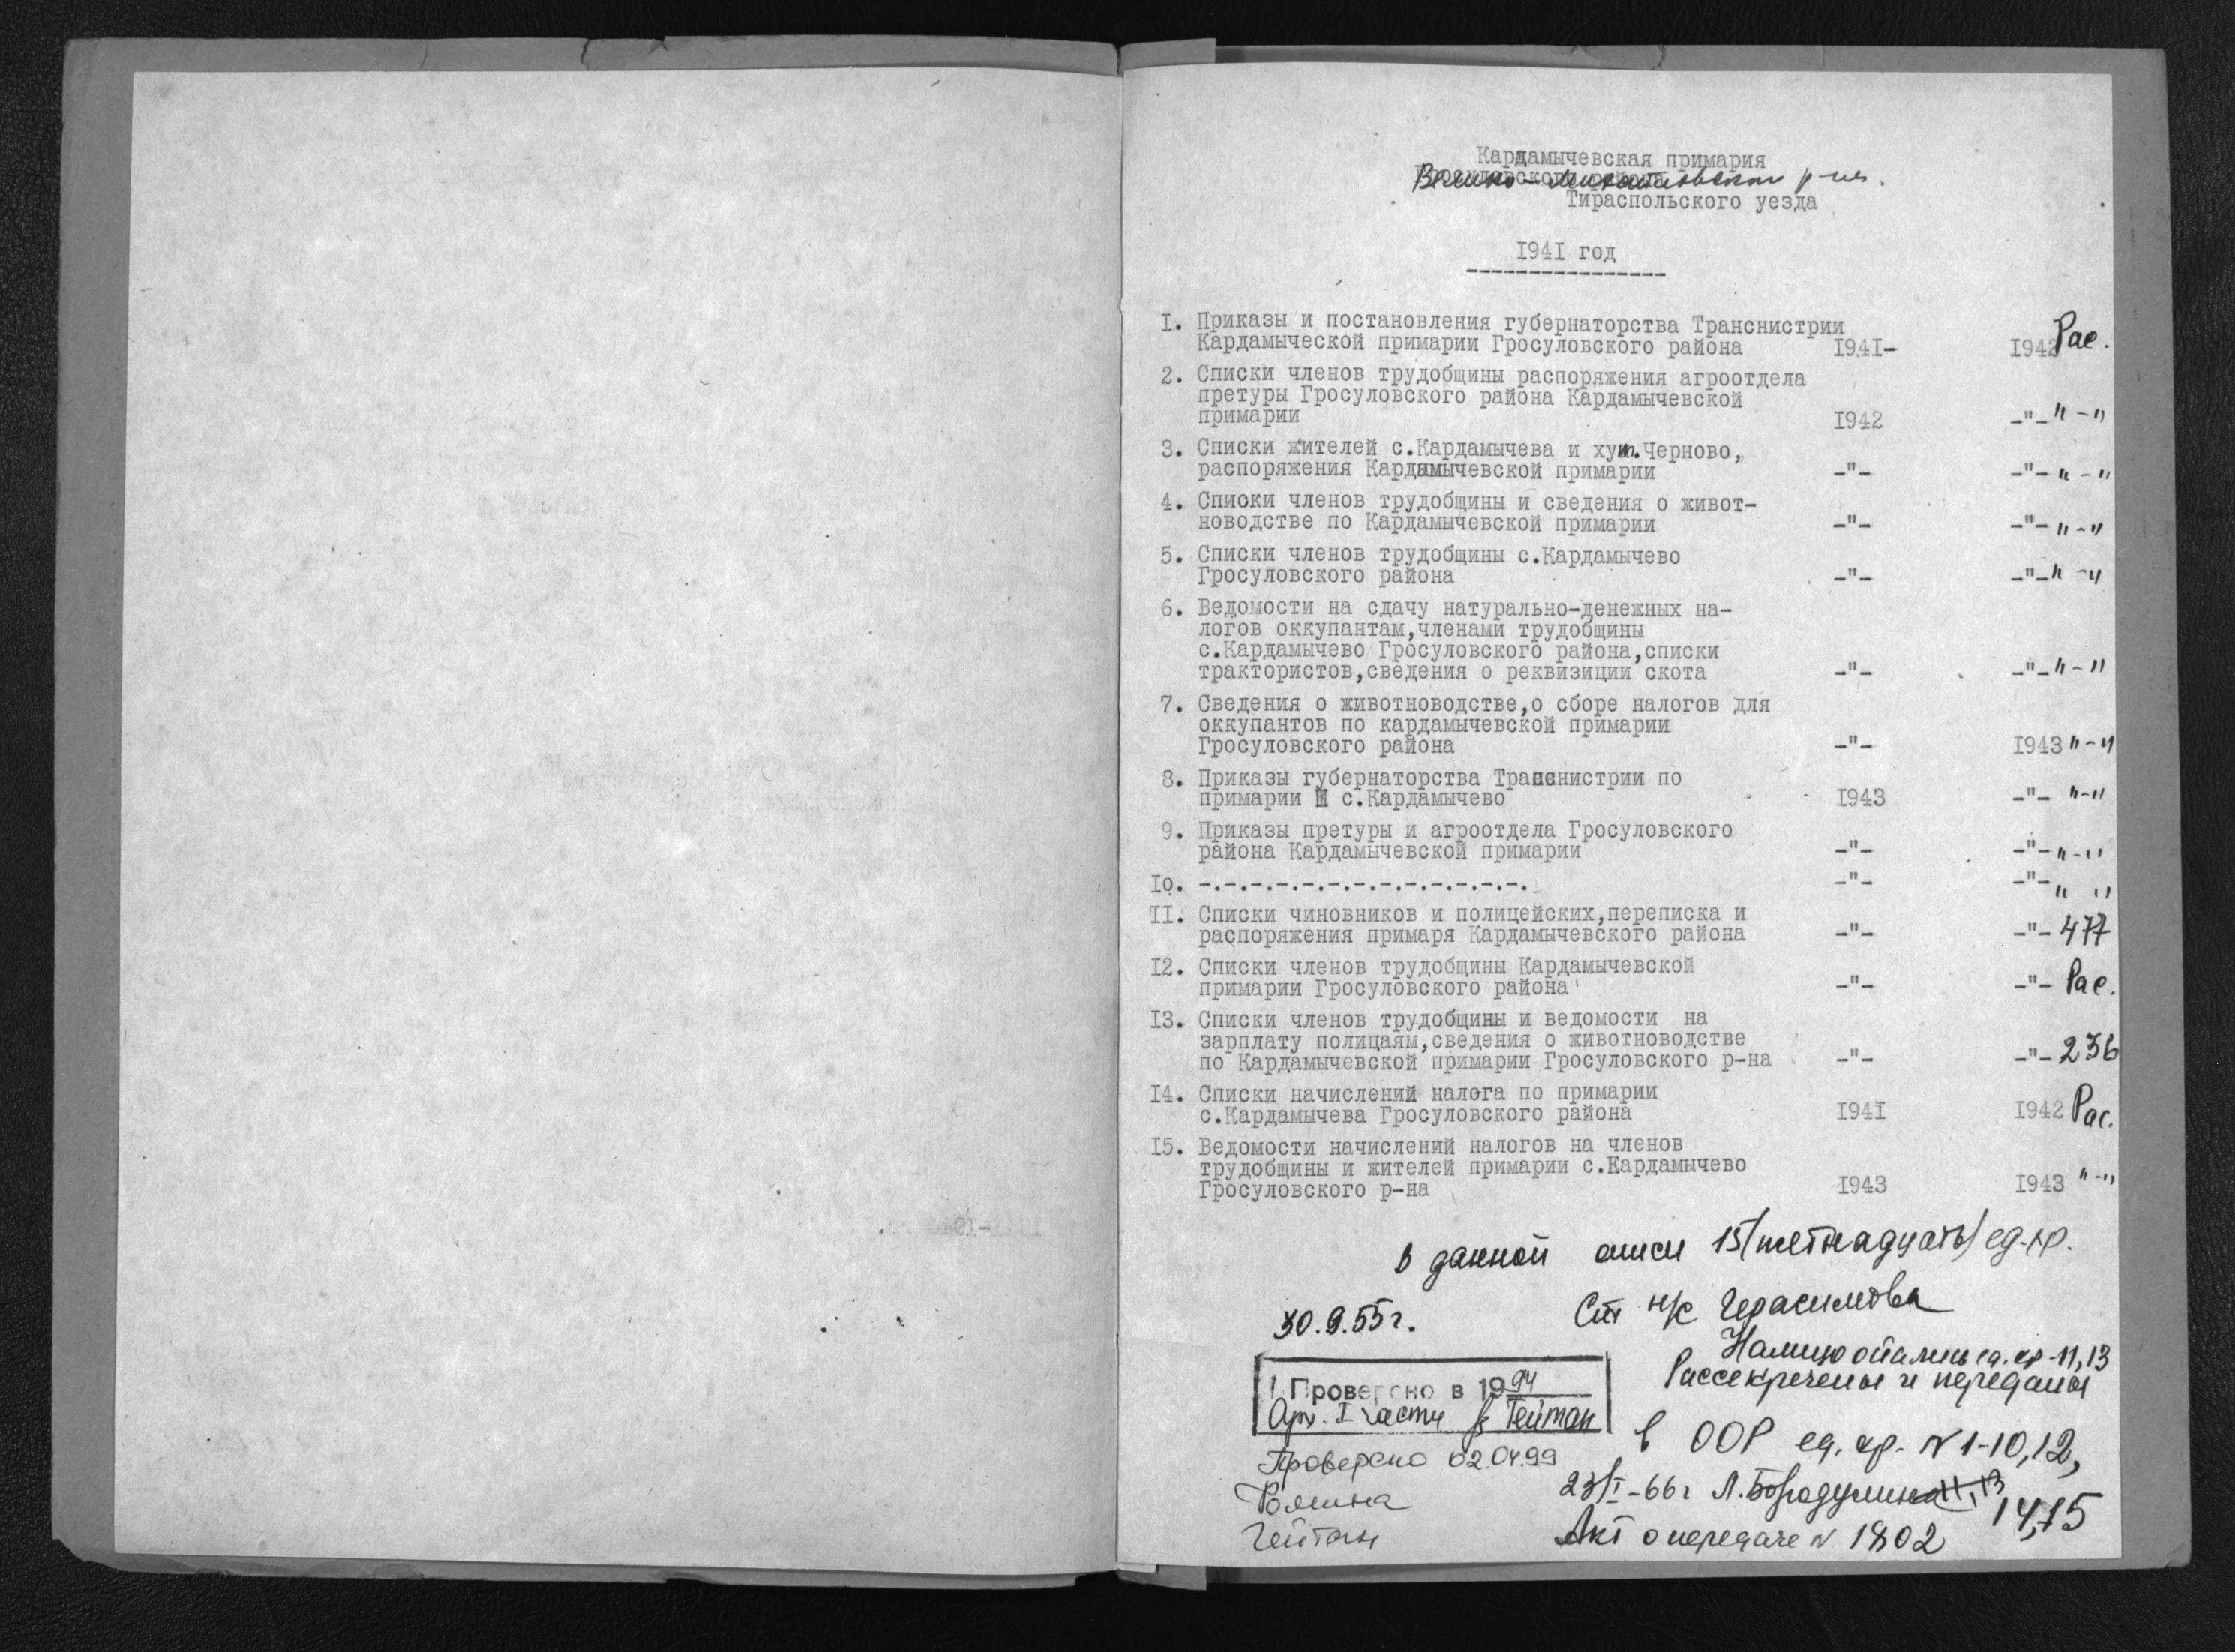 Кардамычевская примария
Велико-Михайловского р-на.
Тираспольского уезда
1941 год
1. Приказы и постановления губернаторства Транснистрии
Кардамыческой примарии Гросуловского района 1941- 1942 Рас.
2. Списки членов трудобщины распоряжения агроотдела
претуры Гросуловского района Кардамычевской
примарии 1942 -"- "-"
3. Списки жителей с.Кардамычева и хут.Черново,
распоряжения Кардамычевской примарии -"- -"- "-"
4. Списки членов трудобщины и сведения о живот-
новодстве по Кардамычевской примарии -"- -"- "-"
5. Списки членов трудобщины с.Кардамычево
Гросуловского района -"- -"- "-"
6. Ведомости на сдачу натурально-денежных на-
логов оккупантам,членами трудобщины
с.Кардамычево Гросуловского района,списки
трактористов,сведения о реквизиции скота -"- -"- "-"
7. Сведения о животноводстве,о сборе налогов для
оккупантов по кардамычевской примарии
Гросуловского района -"- 1943 "-"
8. Приказы губернаторства Транснистрии по
примарии с.Кардамычево 1943 -"- "-"
9. Приказы претуры и агроотдела Гросуловского
района Кардамычевской примарии -"- -"- "-"
10. -.-.-.-.-.-.-.-.-.-.-.-.-. -"- -"- " "
11. Списки чиновников и полицейских,переписка и
распоряжения примаря Кардамычевского района -"- -"- 477
12. Списки членов трудобщины Кардамычевской
примарии Гросуловского района -"- -"- Рас.
13. Списки членов трудобщины и ведомости на
зарплату полицаям,сведения о животноводстве
по Кардамычевской примарии Гросуловского р-на -"- -"- 236
14. Списки начислений налога по примарии
с.Кардамычева Гросуловского района 1941 1942 Рас.
15. Ведомости начислений налогов на членов
трудобщины и жителей примарии с.Кардамычево
Гросуловского р-на 1943 1943 "-"
В данной описи 15/пятнадцать/ ед.хр.
30.9.55г. Ст н/с Герасимова
Налицо остались ед.хр-11,13
Рассекречены и переданы
в ООР ед.хр. N 1-10,12,
14,15
23/I-66г Л.Бородулина 11,13
Акт о передаче N 1802
Проверено в 1994
Арх. I части Гейтан
Проверено 02.04.99
Гейтан